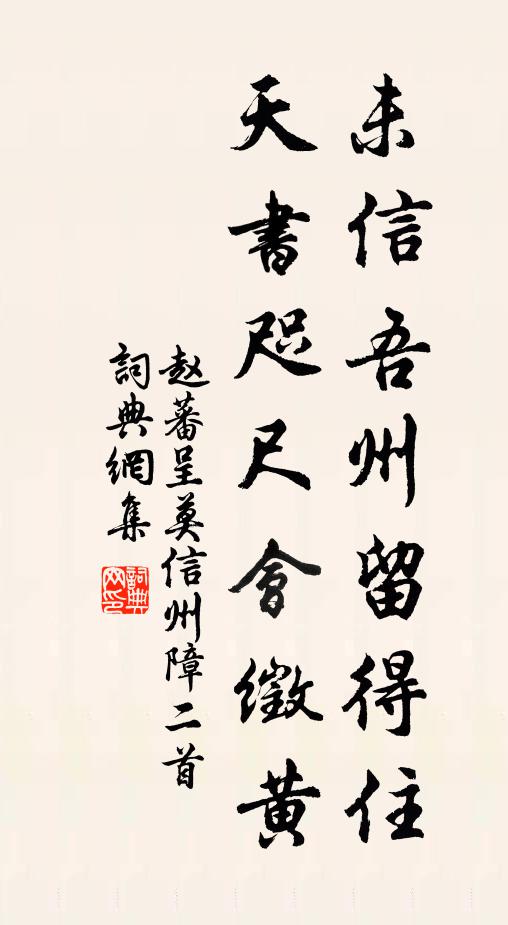 未信吾州留得住
天書咫尺會徵黄
赵蕃呈莫信州障二首
詞典網集
詞典網印